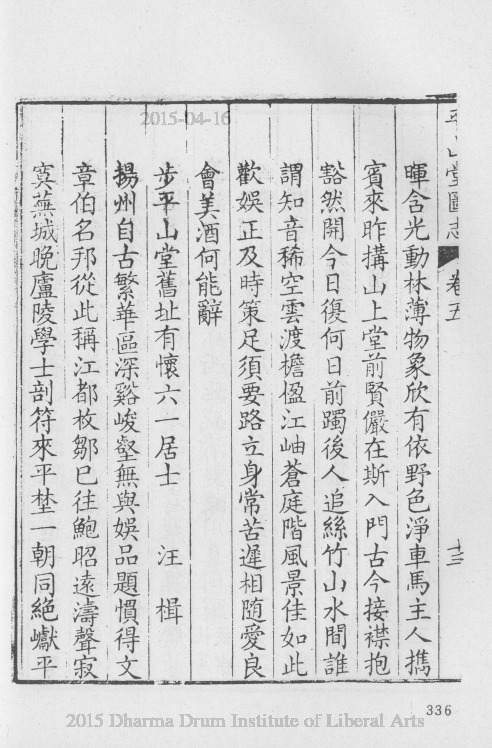 2015-04-16
平山堂圖志
卷五
十三
暉含光動林薄物象欣有依野色淨車馬主人攜
賓來昨搆山上堂前賢儼在斯入門古今接襟抱
豁然開今日復何日前躅後人追絲竹山水間誰
謂知音稀空雲渡擔楹江岫蒼庭階風景佳如此
歡娛正及時策足須要路立身常苦遲相隨愛良
會美酒何能辭
步平山堂舊址有懷六一居士 汪楫
揚州自古繁華區深谿峻壑無與娛品題慣得文
章伯名邦從此稱江都枚鄒已往鮑昭遠濤聲寂
寞蕪城晚廬陵學士剖符來平埜一朝同絕巘平
336
2015 Dharma Drum Institute of Liberal Arts